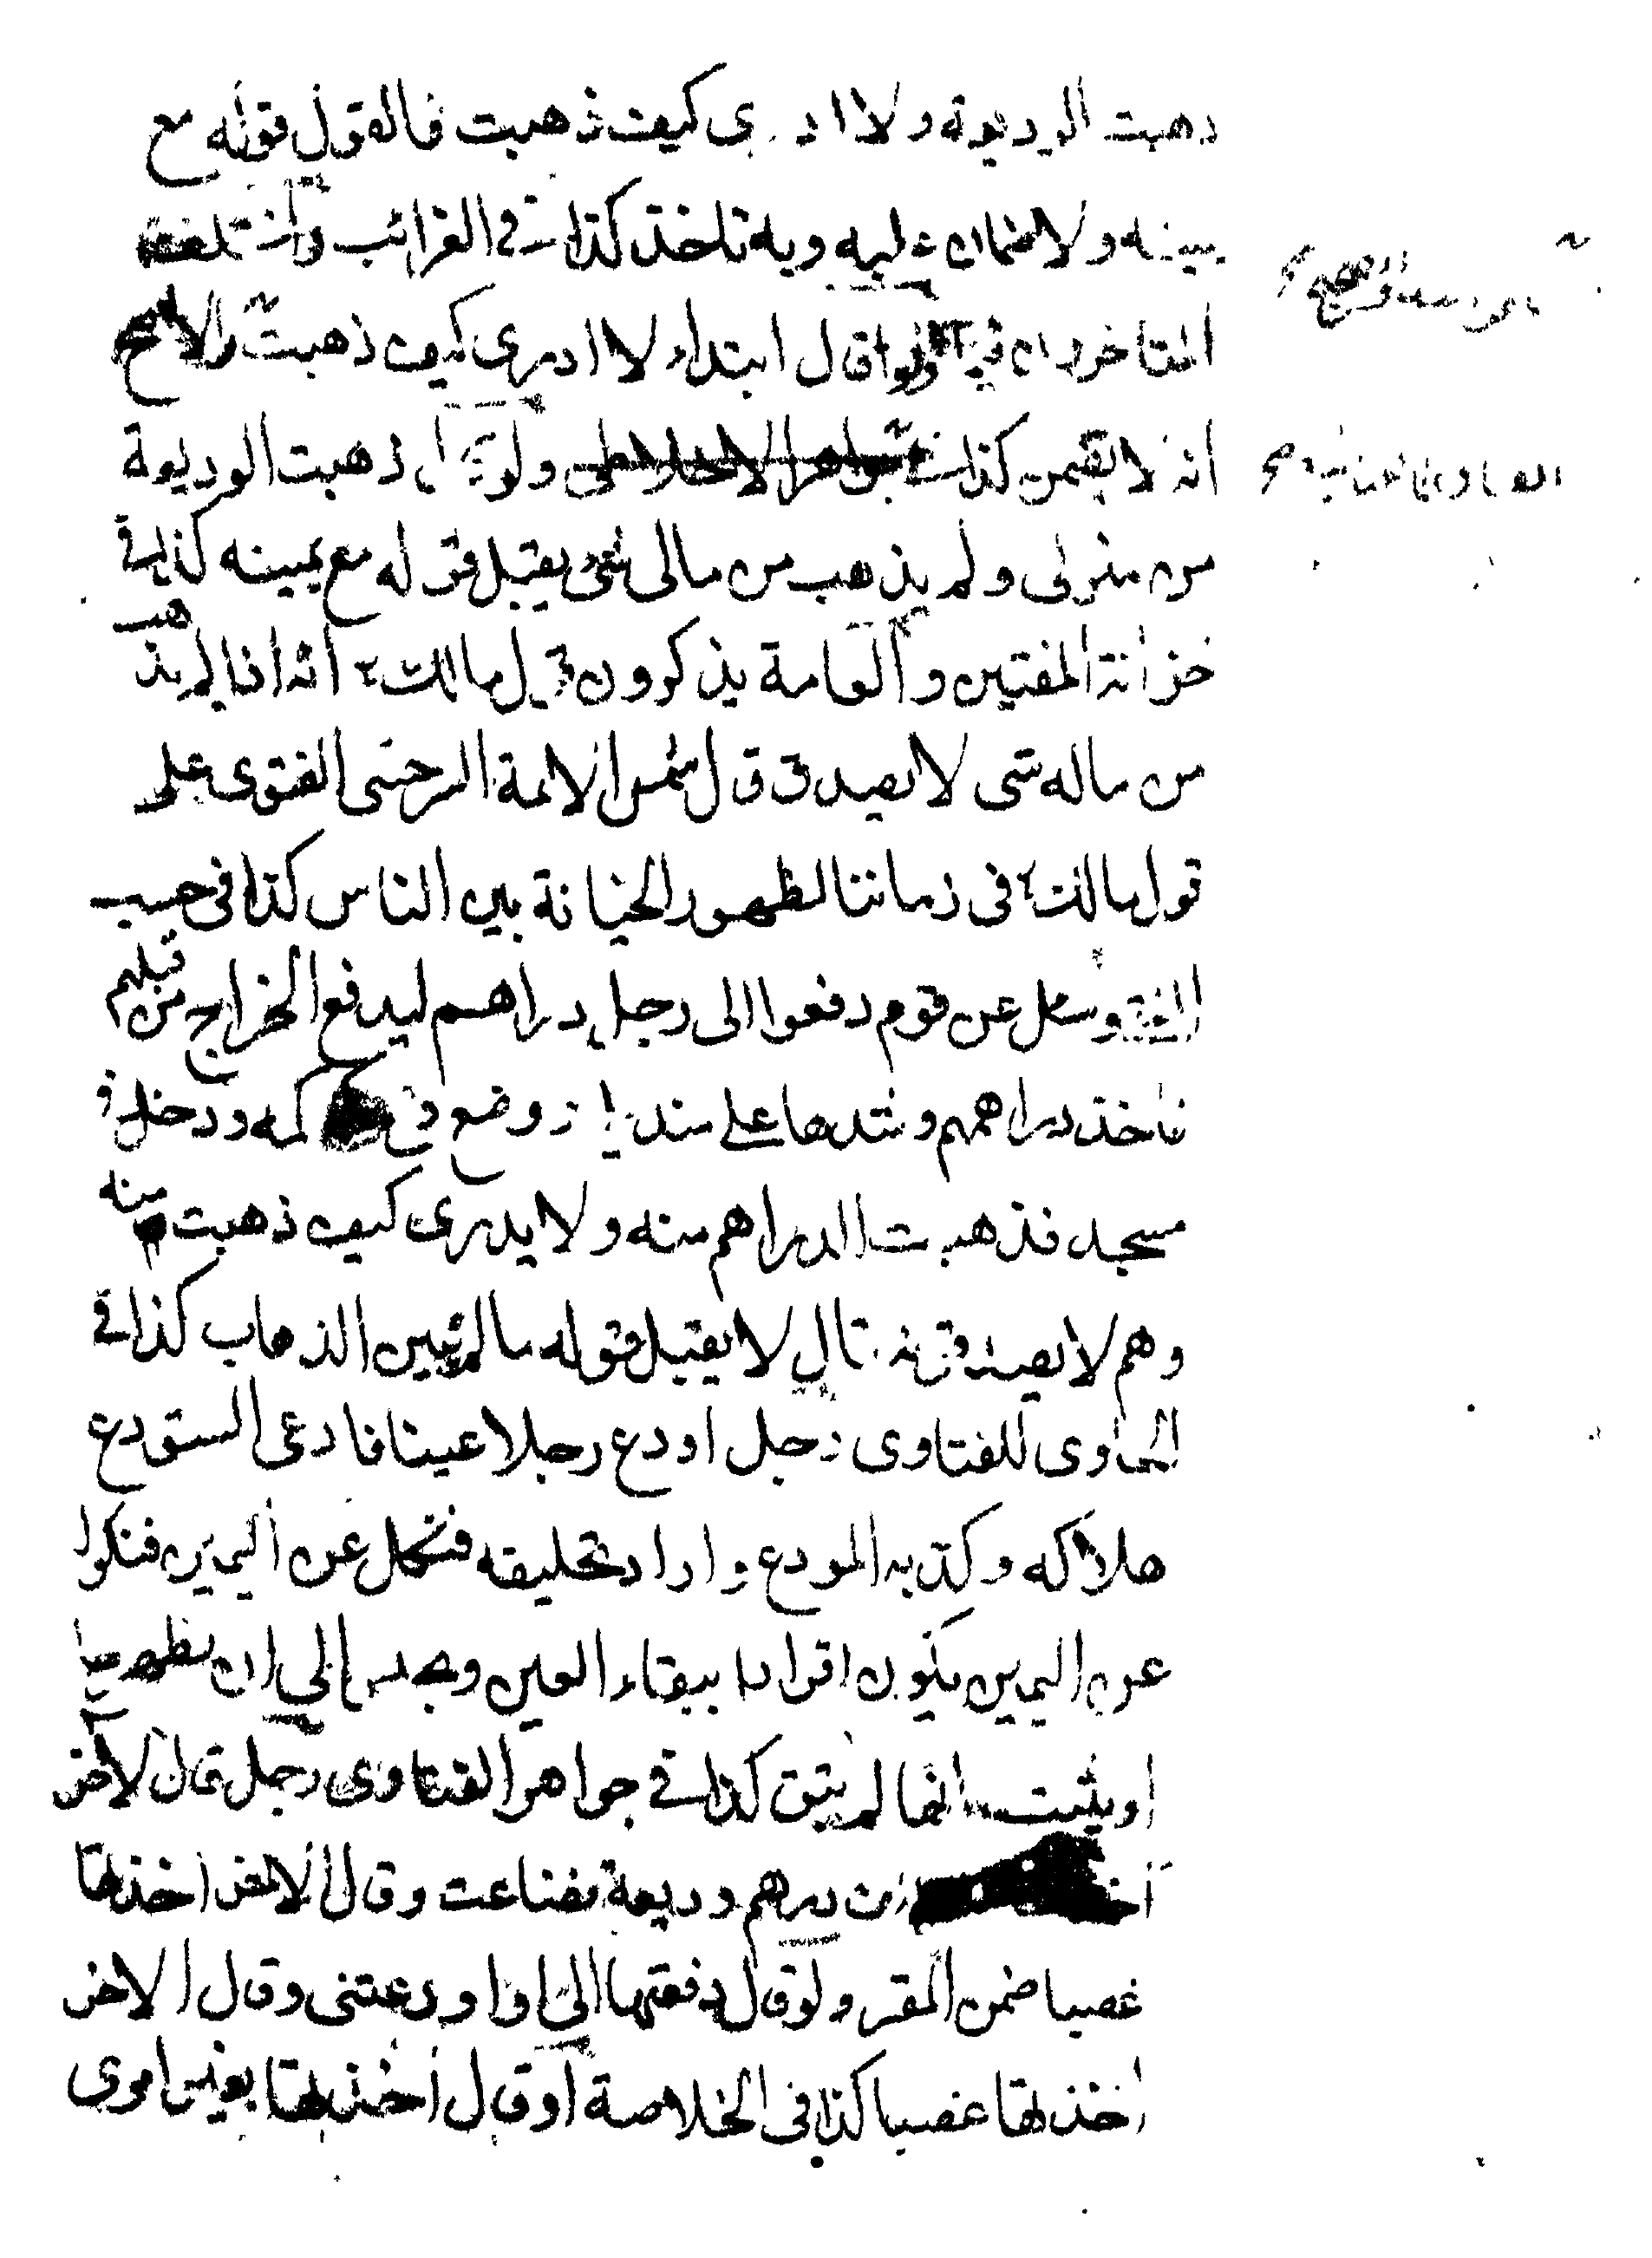 ذهبت الوديعة ولا ادرى كيف ذهبت فالقول قوله مع
يمينه ولا ضمان عليه وبه ناخذ كذا في الغرائب واختلف
المتاخرون فيما اذا قال ابتداء لا ادرى كيف ذهبت والاصح
انه لا يضمن كذا في جواهر الاخلاطى ولو قال ذهبت الوديعة
الفتاوى الغياثية صح
من منزلى ولم يذهب من مالى شئ يقبل قوله مع يمينه كذا في
خزانة المفتين والعامة يذكرون قول مالك انه اذا لم يذهب
من ماله شى لا يصدق قال شمس الائمة السرخسى الفتوى على
قول مالك في زماننا لظهور الخيانة بين الناس كذا فى حسب
المفتى وسئل عن قوم دفعوا الى رجل دراهم ليدفع الخراج من قبلهم
فاخذ دراهمهم وشدها على منديل ووضع في كمه ودخل في
مسجد فذهبت الدراهم منه ولا يدرى كيف ذهبت منه
وهم لا يصدقونه قال لا يقبل قوله ما لم يبين الذهاب كذا في
الحاوى للفتاوى رجل اودع رجلا عينا فادعى المستودع
هلاكه وكذبه المودع واراد تحليفه فنكل عن اليمين فنكوله
عن اليمين يكون اقرارا ببقاء العين ويحبس الى ان يظهرها
او يثبت انها لم تبق كذا في جواهر الفتاوى رجل قال لاخر
اخذت منك الف درهم وديعة فضاعت وقال الاخر اخذتها
غصبا ضمن المقر ولو قال دفعتها الى او اودعتنى وقال الاخر
اخذتها غصبا كذا فى الخلاصة او قال اخذتها بغير امرى